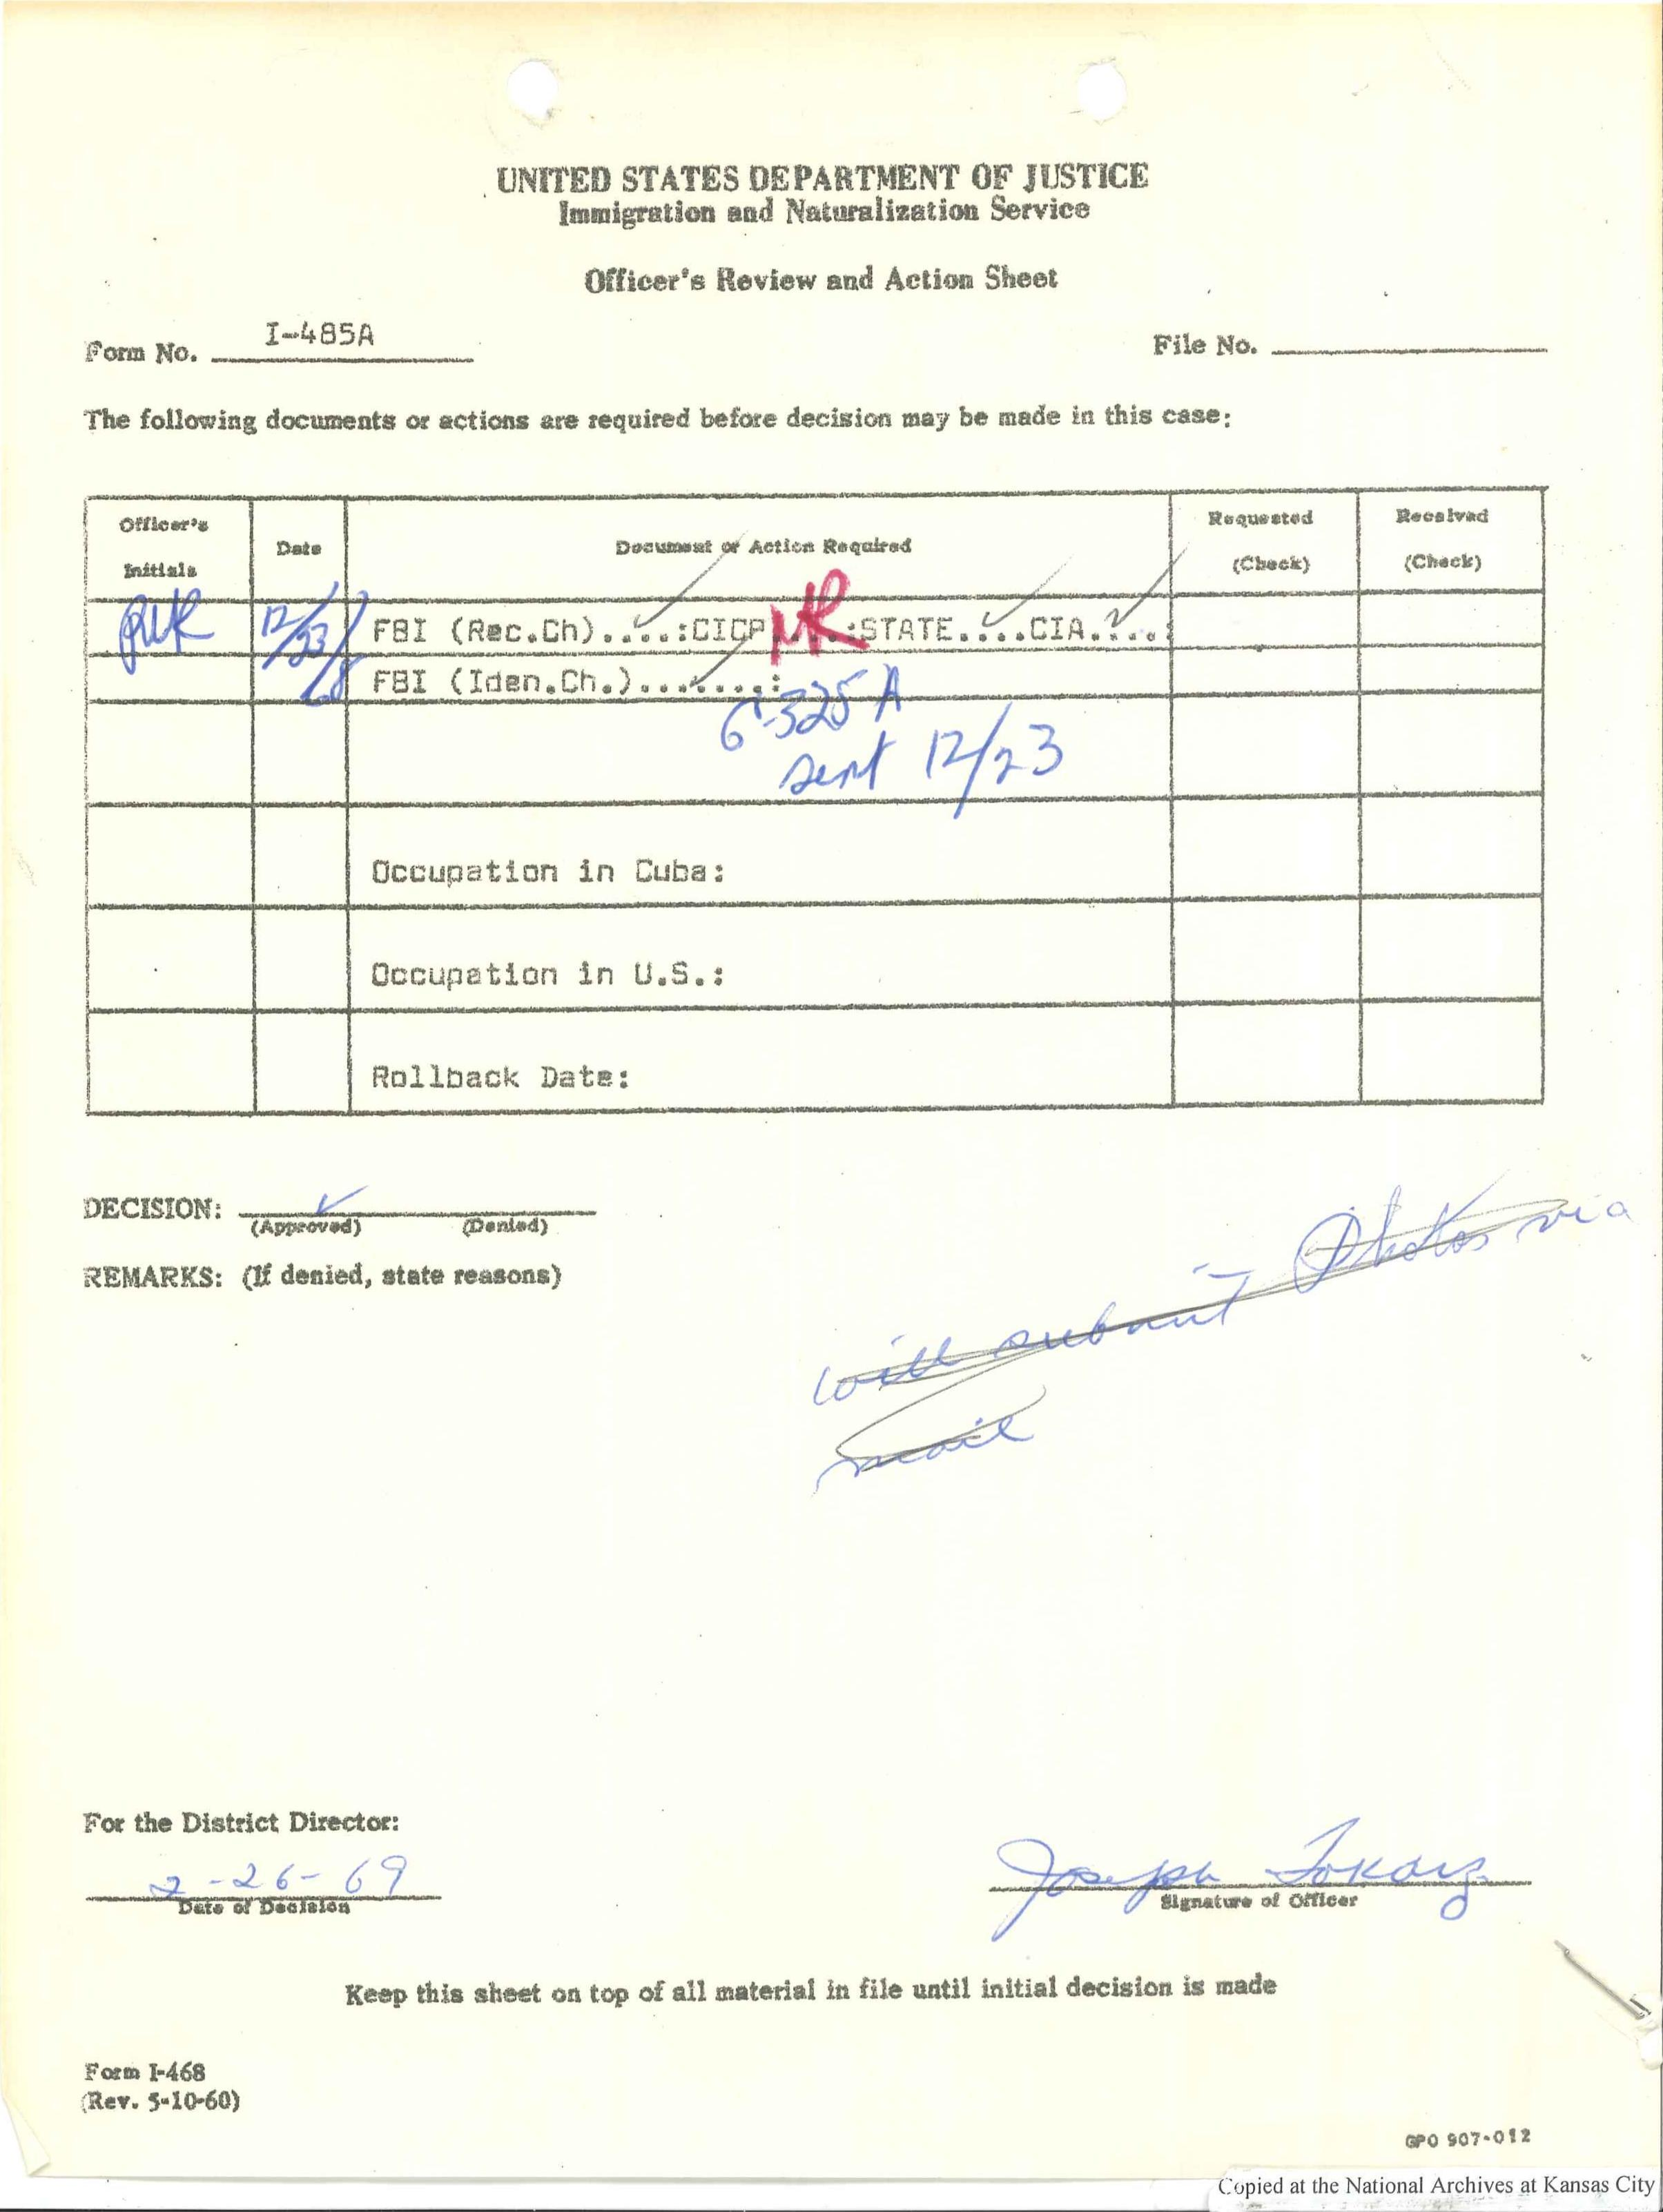 UNITED STATES DEPARTMENT OF JUSTICE
Immigration and Naturalization Service
Officer's Review and Action Sheet
Form No. I-485A
File No.
The following documents or actions are required before decision may be made in this case:
Officer's Initials
Date
Document or Action Required
Requested (Check)
Received (Check)
12/23/68
FBI (Rec.Ch).....:CICP NR :STATE....CIA....:
FBI (Iden.Ch.)........:
G-325A
sent 12/23
Occupation in Cuba:
Occupation in U.S.:
Rollback Date:
DECISION: ✓
(Approved) (Denied)
REMARKS: (If denied, state reasons)
will submit Photos via
mail
For the District Director:
2-26-69
Date of Decision
Joseph Tokarz
Signature of Officer
Keep this sheet on top of all material in file until initial decision is made
Form I-468
(Rev. 5-10-60)
GPO 907-012
Copied at the National Archives at Kansas City